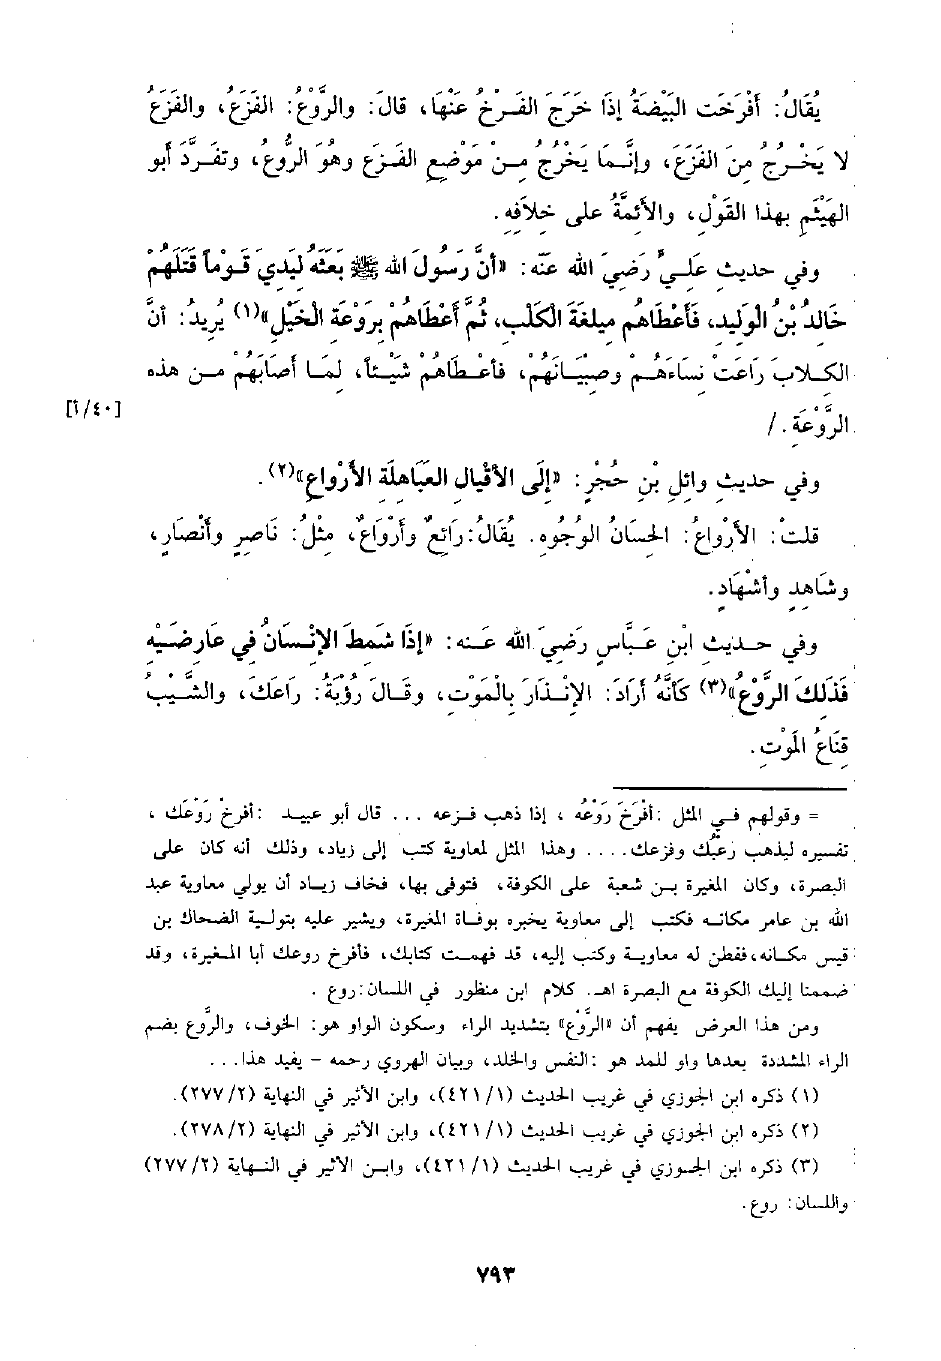 يُقَالُ: أَفْرَخَت البَيْضَةُ إِذَا خَرَجَ الفَرْخُ عَنْهَا، قَالَ: والرَّوْعُ: الفَزَعُ، والفَزَعُ
لا يَخْرُجُ مِنَ الفَزَعِ، وإِنَّمَا يَخْرُجُ مِنْ مَوْضِعِ الفَزَعِ وهُوَ الرُّوعُ، وتفَرَّدَ أبو
الهَيْثَمِ بهذا القَوْلِ، والأئِمَّةُ على خِلَافِهِ.
وفي حديثِ عَلِيٍّ رَضِيَ الله عَنْه: «أنَّ رَسُولَ الله ﷺ بَعَثَهُ لِيَدِيَ قَوْماً قَتَلَهُمْ
خَالدُ بْنُ الوَلِيدِ، فَأَعْطَاهُم مِيلَغَةَ الكَلْبِ، ثُمَّ أَعْطَاهُمْ بِرَوْعَةِ الخَيْلِ»(١) يُرِيدُ: أنَّ
الكِلَابَ رَاعَتْ نِسَاءَهُمْ وصِبْيَانَهُمْ، فأَعْطَاهُمْ شَيْئاً، لِمَا أصَابَهُمْ مِن هذه
[٤٠/أ]
الرَّوْعَةِ. /
وفي حديثِ وائِلِ بْنِ حُجْرٍ: «إِلَى الأَقْيَالِ العَبَاهِلَةِ الأَرْوَاعِ»(٢).
قلتُ: الأَرْوَاعُ: الحِسَانُ الوُجُوهِ. يُقَالُ: رَائِعٌ وأَرْوَاعٌ، مِثْلُ: نَاصِرٍ وأَنْصَارٍ،
وشَاهِدٍ وأشْهَادٍ.
وفي حديث ابْنِ عَبَّاسٍ رَضِيَ الله عَنه: «إِذَا شَمِطَ الإِنْسَانُ في عَارِضَيْهِ
فَذَلِكَ الرَّوْعُ»(٣) كَأَنَّهُ أَرَادَ: الإِنْذَارَ بِالمَوْتِ، وقَالَ رُؤْبَةُ: رَاعَكَ، والشَّيْبُ
قِنَاعُ المَوْتِ.
= وقولهم في المثل: أَفْرَخَ رَوْعُه، إذا ذهب فزعه ... قال أبو عبيد: أفرخْ رَوْعَك،
تفسيره ليذهب رعبُك وفزعك.... وهذا المثل لمعاوية كتب إلى زياد، وذلك أنه كان على
البصرة، وكان المغيرة بن شعبة على الكوفة، فتوفى بها، فخاف زياد أن يولي معاوية عبد
الله بن عامر مكانه فكتب إلى معاوية يخبره بوفاة المغيرة، ويشير عليه بتولية الضحاك بن
قيس مكانه، ففطن له معاوية وكتب إليه، قد فهمت كتابك، فأفرخ روعك أبا المغيرة، وقد
ضممنا إليك الكوفة مع البصرة اهـ. كلام ابن منظور في اللسان: روع.
ومن هذا العرض يفهم أن «الرَّوْع» بتشديد الراء وسكون الواو هو: الخوف، والرُّوع بضم
الراء المشددة بعدها واو للمد هو: النفس والخلد، وبيان الهروي رحمه – يفيد هذا...
(١) ذكره ابن الجوزي في غريب الحديث (٤٢١/١)، وابن الأثير في النهاية (٢٧٧/٢).
(٢) ذكره ابن الجوزي في غريب الحديث (٤٢١/١)، وابن الأثير في النهاية (٢٧٨/٢).
(٣) ذكره ابن الجوزي في غريب الحديث (٤٢١/١)، وابن الأثير في النهاية (٢٧٧/٢)
واللسان: روع.
٧٩٣